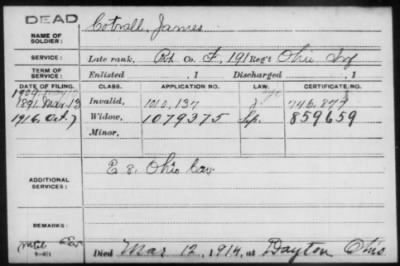 DEAD
NAME OF SOLDIER: Cotrall, James
SERVICE: Late rank, Pvt. Co. F, 191 Reg't Ohio Inf
TERM OF SERVICE: Enlisted , 1 Discharged , 1
DATE OF FILING. CLASS. APPLICATION NO. LAW. CERTIFICATE NO.
1891, Mar 13 Invalid, 1010,137 746,877
1916, Oct. 7 Widow, 1079375 859659
Minor,
ADDITIONAL SERVICES: E 8. Ohio Cav
REMARKS:
Died Mar 12, 1914, at Dayton Ohio